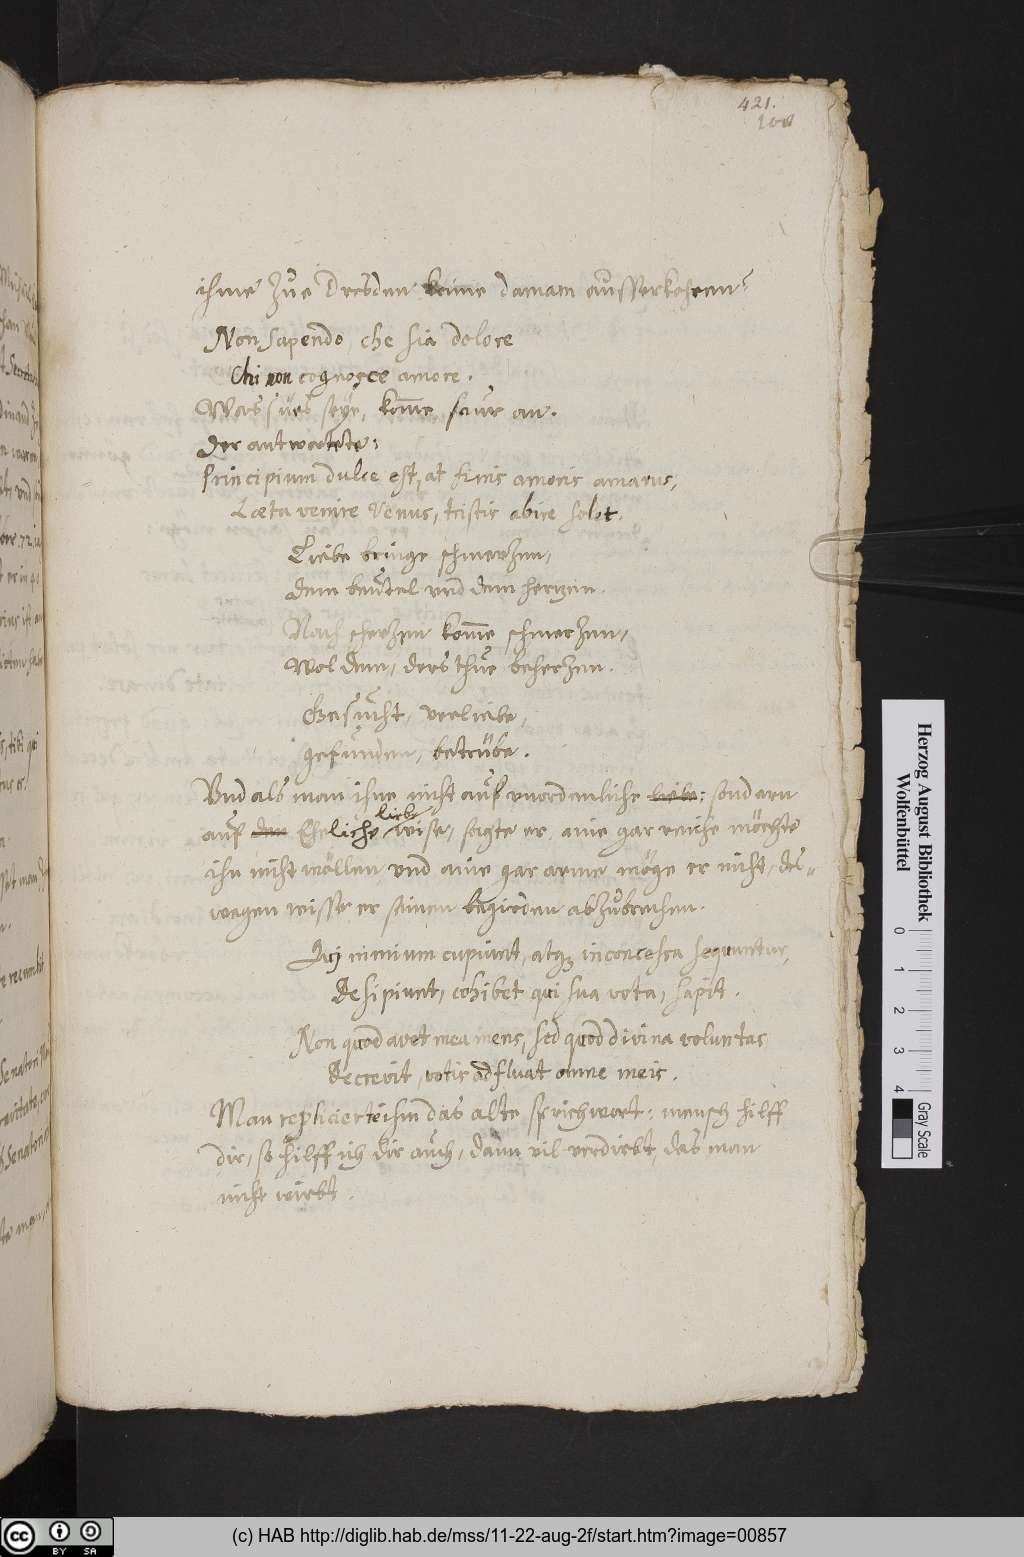 421.
ihme zue Dresden keine damam ausserkohren?
Non sapendo, che sia dolore
Chi non cognosce amore.
Was sües seye, komme saur an.
Der antwortete:
Principium dulce est, at finis amoris amarus,
Læta venire Venus, tristis abire solet.
Liebe bringe schmerzen,
dem beütel vnd dem herzen.
Nach scherzen komme schmerzen,
Wol dem, ders thue beherzen.
Gesucht, verliebe,
gefunden, betrübe.
Vnd als man ihne nicht auf vnordenliche liebe: sondern
liebs
auf den Eheliche wise, sagte er, eine gar reiche möchte
ihn nicht wöllen vnd eine gar arme möge er nicht, des-
wegen wisse er seinen begirden abzubrechen.
Qui nimium cupiunt, atq inconcessa sequuntur,
Desipiunt, cohibet qui sua vota, sapit.
Non quod avet mea mens, sed quod divina voluntas
decrevit, votis adfluat omne meis.
Man replicierte ihm das alte sprichwort: mensch hilff
dir, so hilff ich dir auch, dann vil verdirbt, das man
nicht wirbt.
Herzog August Bibliothek
Wolfenbüttel
0 1 2 3 4
Gray Scale
cc BY SA
(c) HAB http://diglib.hab.de/mss/11-22-aug-2f/start.htm?image=00857